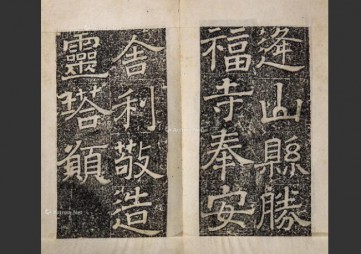 逄山縣勝
福寺奉安
舍利敬造
靈塔願